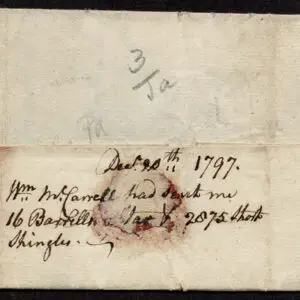 3/Ja
Pa
Decr. 20th 1797.
Wm. McCarrell had sent me
16 Barrells Tarr & 2875 Short
Shingles.